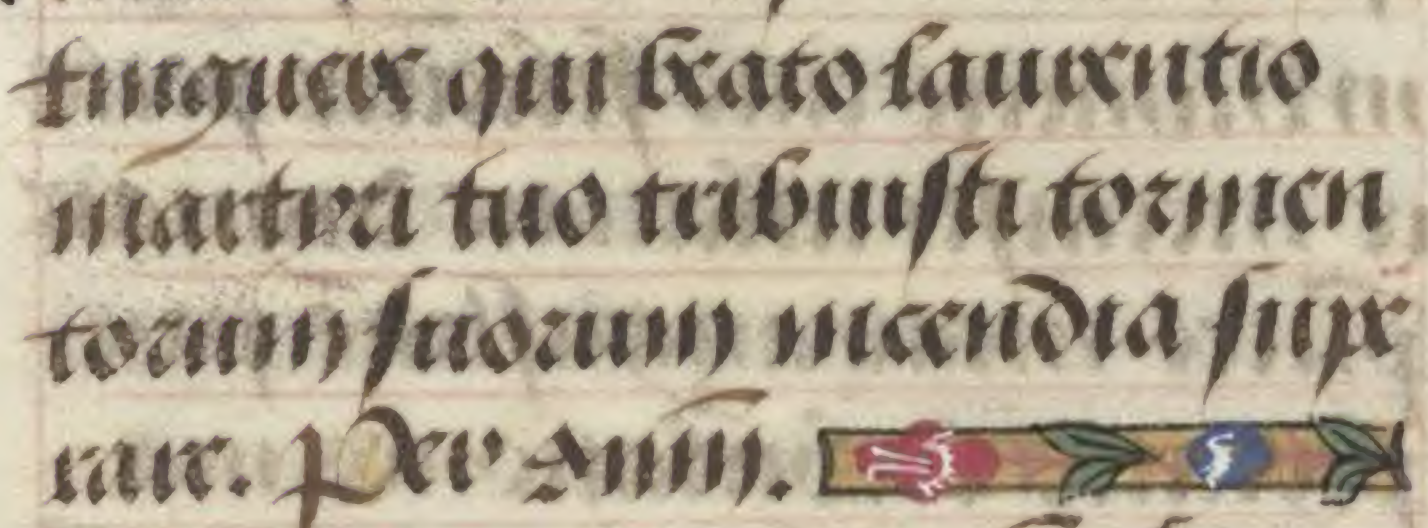 tinguere qui beato laurentio
martyri tuo tribuisti tormen
torum suorum incendia supe
rare. Per dnm̄.